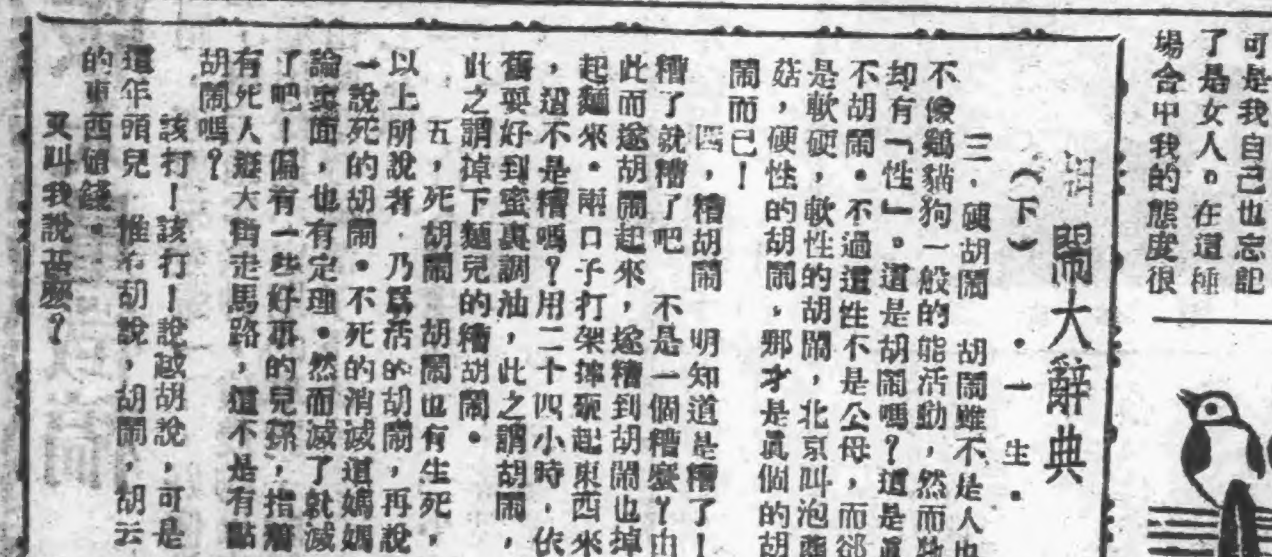 可是我自己也忘記
了是女人。在這種
場合中我的態度很
胡鬧大辭典
（下）　・一生・
三，硬胡鬧　胡鬧雖不是人也
不像鷄貓狗一般的能活動，然而牠
却有「性」。這是胡鬧嗎？這是眞
不胡鬧。不過這性不是公母，而卻
是軟硬，軟性的胡鬧，北京叫泡蘑
菇，硬性的胡鬧，那才是眞個的胡
鬧而已！
四，糟胡鬧　明知道是糟了！
糟了就糟了吧　不是一個糟麼？由
此而遂胡鬧起來，遂糟到胡鬧也掉
起麵來。兩口子打架摔砸起東西來
，這不是糟嗎？用二十四小時，依
舊要好到蜜裏調油，此之謂胡鬧，
此之謂掉下麵兒的糟胡鬧。
五，死胡鬧　胡鬧也有生死，
以上所說者，乃爲活的胡鬧，再說
一說死的胡鬧。不死的消滅道媽媽
論裏面，也有定理。然而滅了就滅
了吧！偏有一些好事的兒孫，指着
有死人遊大街走馬路，這不是有點
胡鬧嗎？
該打！該打！說越胡說，可是
這年頭兒　惟有胡說，胡鬧，胡云
的東西値錢。
又叫我說甚麼？